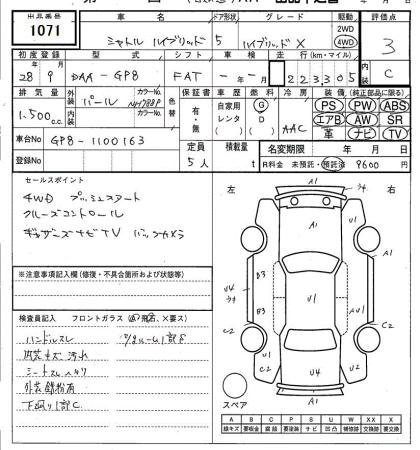 出品番号 車名 ドア形状 グレード 駆動 評価点
1071 シャトル ハイブリッド 5 ハイブリッド X 2WD 4WD 3
初度登録 型式 シフト 車検 走行(km・マイル) 内装
28年 9月 DAA-GP8 FAT -年-月 223305 C
排気量 外装 パール カラーNo. NH788P 色替 保証書 車歴 燃料 冷房 装備(純正部品に限る)
1,500c.c. 内装 カラーNo. 有・無 自家用 レンタ G D AAC PS PW ABS
エアB AW SR
革 ナビ TV
車台No GP8-1100163 定員 5人 積載量 t 名変期限 年 月 日
登録No R料金 未預託・預託済 9600円
セールスポイント
4WD プッシュスタート
クルーズコントロール
ギャザーズナビTV バックカメラ
※注意事項記入欄(修復・不具合箇所および状態等)
検査員記入 フロントガラス
ハンドルスレ
内装キズ汚れ
シートスレヘタリ
外装鉄粉有
下廻り1部C
左 右
A1 A1 A1 U4 B3 B3 U1 AU1 C2 C2 U2 C2 U4 U1 A1
スペア
A B C P S U W X XX
線キズ 要板金 腐蝕 要塗装 サビ 凹凸 補修跡 要交換 交換済